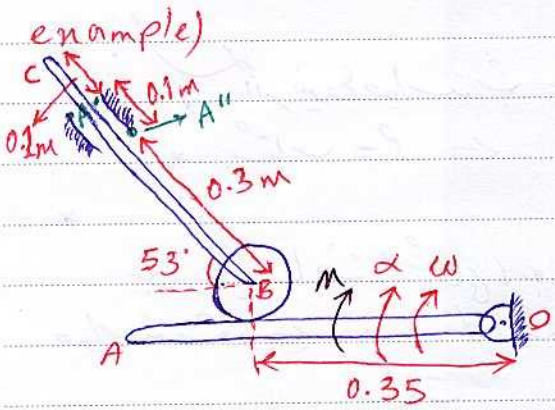 example)
C
0.1m
A"
A'
0.1m
0.3m
53°
B
M α ω
A
O
0.35